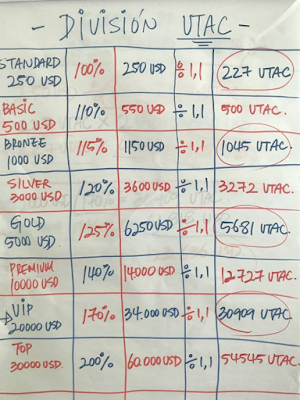 - DIVISIÓN UTAC -
STANDARD 250 USD 100% 250 USD ÷ 1,1 227 UTAC
BASIC 500 USD 110% 550 USD ÷ 1,1 500 UTAC.
BRONZE 1000 USD 115% 1150 USD ÷ 1,1 1045 UTAC.
SILVER 3000 USD 120% 3600 USD ÷ 1,1 3272 UTAC.
GOLD 5000 USD 125% 6250 USD ÷ 1,1 5681 UTAC
PREMIUM 10000 USD 140% 14000 USD ÷ 1,1 12727 UTAC.
VIP 20000 USD 170% 34.000 USD ÷ 1,1 30909 UTAC
TOP 30000 USD. 200% 60.000 USD ÷ 1,1 54545 UTAC.